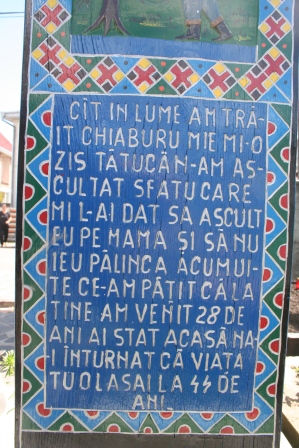 CÎT IN LUME AM TRĂ-
IT CHIABURU MIE MI-O
ZIS TĂTUCĂ N-AM AS-
CULTAT SFATU CARE
MI L-AI DAT SĂ ASCULT
EU PE MAMA ȘI SĂ NU
IEU PĂLINCA ACUM UI-
TE CE-AM PĂȚIT CĂ LA
TINE AM VENIT 28 DE
ANI AI STAT ACASĂ NA-
I ÎNTURNAT CĂ VIAȚA
TU O LASAI LA 44 DE
ANI.